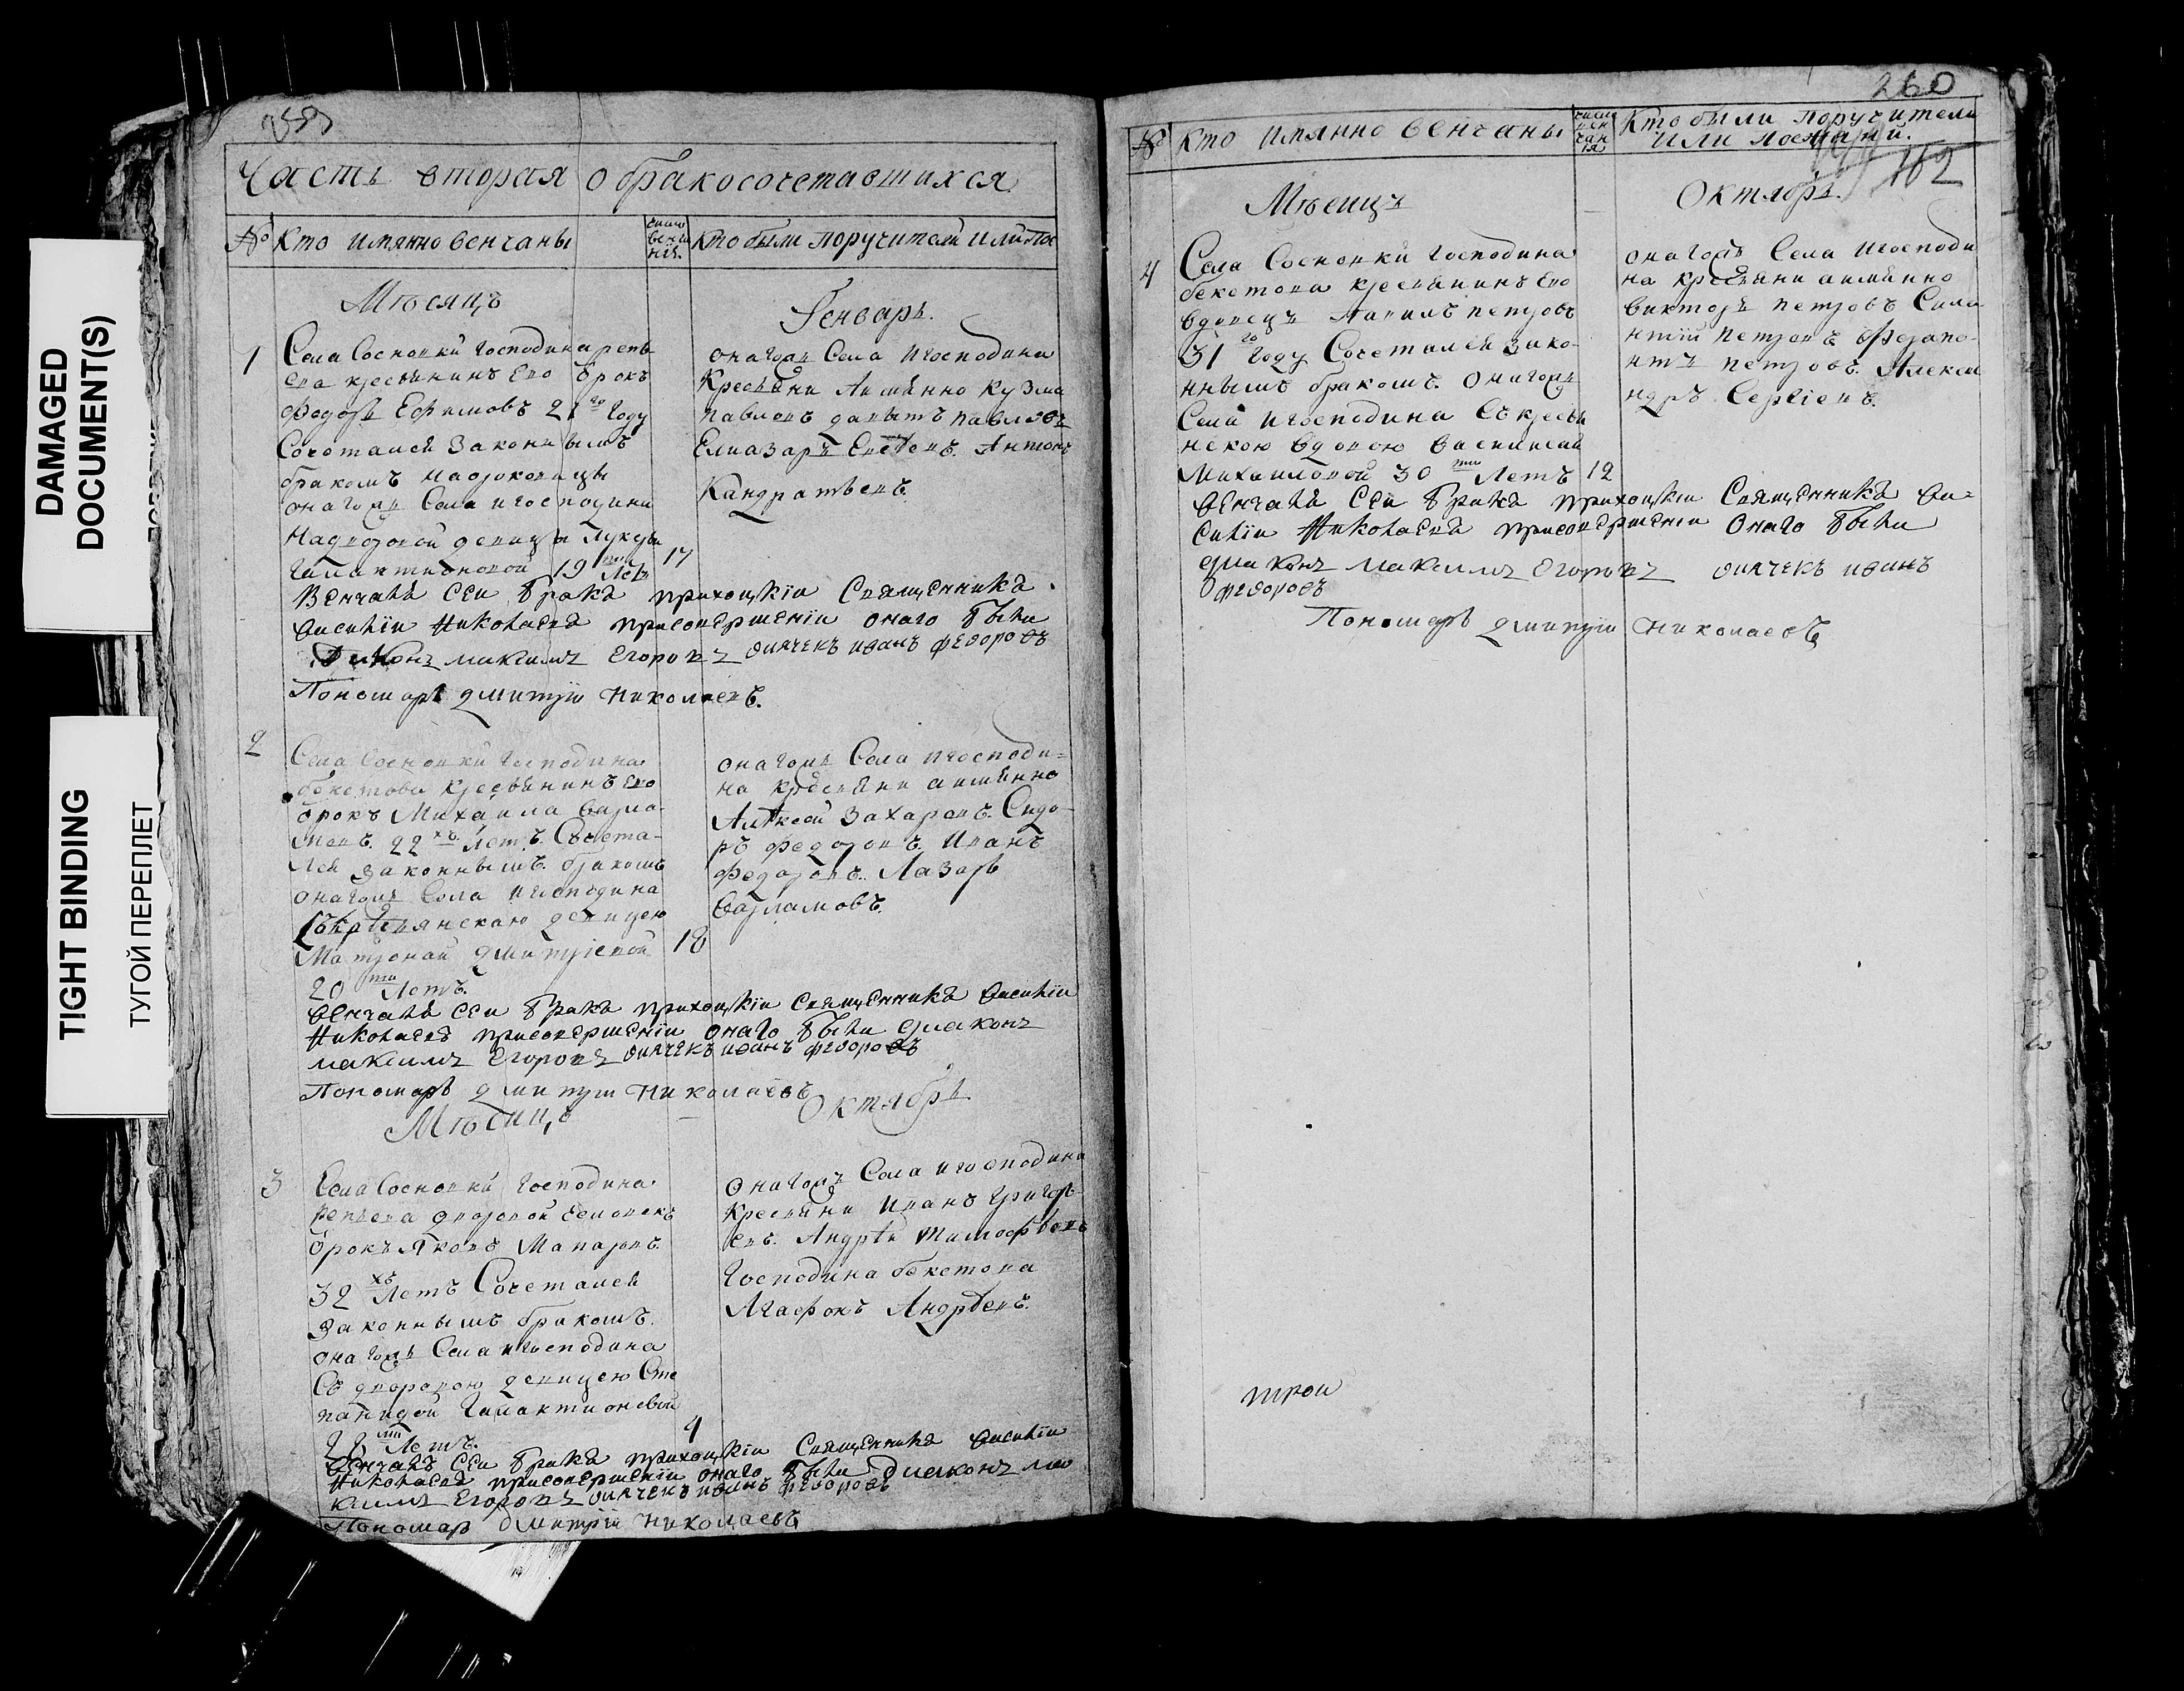 DAMAGED
DOCUMENT(S)
TIGHT BINDING
ТУГОЙ ПЕРЕПЛЕТ
Часть вторая о бракосочетавшихся
№ Кто имянно венчаны
число венча ния.
Кто были поручители или по
Мѣсяцъ
Генварь.
1
Села Сосновки Господина
крестьянинъ Ево отрокъ
Федоръ Ефимовъ 21 го Году
Сочетался Законнымъ
бракомъ
онагожъ Села и господина
19 Летъ
17
онагожъ Села и господина
Крестьяни Аимянно Кузма
павловъ давытъ павловъ
Елиазаръ Антонъ
Кандратьевъ.
Венчалъ сей бракъ приходскіи Священникъ
Василіи Николаевъ присовершеніи онаго были
Диаконъ максимъ Егоровъ диячекъ иванъ федоровъ
Пономарь дмитрiи николаевъ.
2
Села Сосновки Господина
бекетова крестьянинъ Ево
отрокъ Михаила варла
мовъ. 22 хъ Летъ. Сочета-
лся законнымъ бракомъ
онагожъ Села и господина
Съкрестьянскаю девицею
Матроной дмитріевой
20 ти Летъ.
18
онагожъ Села и господи=
на крестьяни аимянно
Алѣксей Захаровъ. Сидо-
ръ федоровъ. Иванъ
федоровъ. Лазарь
Варламовъ.
венчалъ сей бракъ приходскіи священникъ Василіи
Николаевъ присовершеніи онаго были диаконъ
максимъ Егоровъ диячекъ иванъ федоровъ
Пономарь дмитріи николаевъ
Мѣсицъ
Октябрь
3
Села Сосновки Господина
отрокъ Яковъ Макаровъ.
32 хъ Летъ Сочетался
Законнымъ бракомъ.
онагожъ Села и господина
Съ дворовою девицею Сте
панидой Галактионовой
Летъ.
9
Онагожъ Села и господина
Крестьяни Иванъ Григорь
евъ. Андрѣй Тимофѣевъ
Господина бекетова
Агафонъ Андрѣевъ.
Венчалъ сей бракъ приходскіи Священникъ Василіи
Николаевъ присовершеніи онаго были Диаконъ мак
симъ Егоровъ диячекъ иванъ федоровъ
Пономарь дмитрій николаевъ
260
162
№ Кто имянно венчаны
число вен чан ія
Кто были поручители
или поежани.
Мѣсицъ
Октябрь.
4
Села Сосновки Господина
бекетова крестьянинъ Ево
вдовецъ петровъ
31 го Году Сочетался Зако-
ннымъ бракомъ. Онагожъ
Села и господина Съкресть
нскою вдовою Василисай
Михаиловой 30 ти Летъ
12
онагожъ Села и господи
на крестьяни аимянно
викторъ петровъ Сила
нтій петровъ Ферапо-
нтъ петровъ. Алекса
ндръ Сергіевъ.
венчалъ сей бракъ приходскіи Священникъ Ва=
силіи Николаевъ присовершеніи Онаго были
диаконъ максимъ Егоровъ диячекъ иванъ
федоровъ
Пономарь дмитріи николаевъ
трои